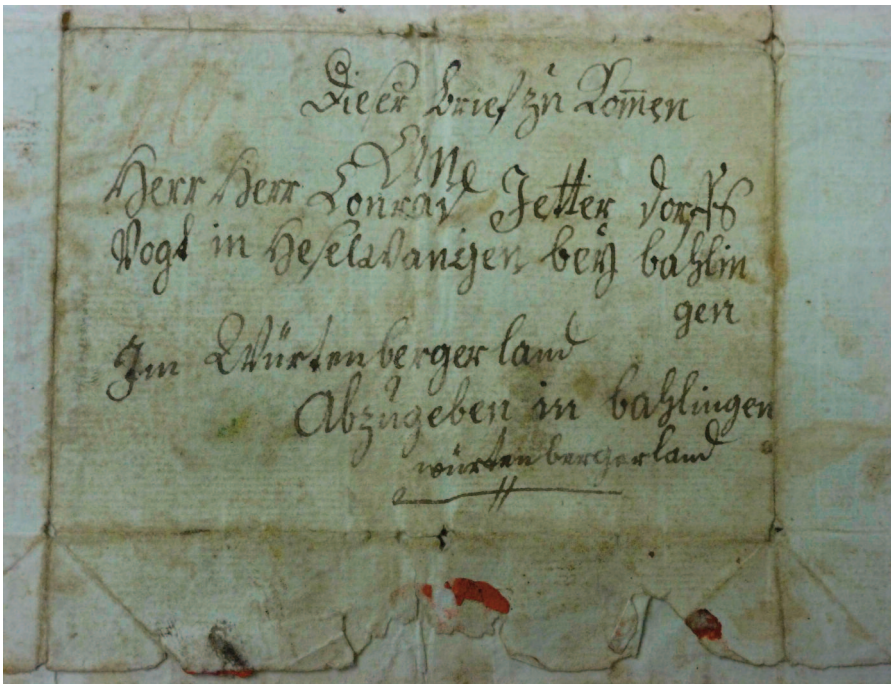 Dieser brief zu Kom̅en
An
Herr Herr Conrad Jetter dorffs
Vogt in Heselwangen bey bahlin
gen
Im Würtenberger land
Abzugeben in bahlingen
würtenbergerland